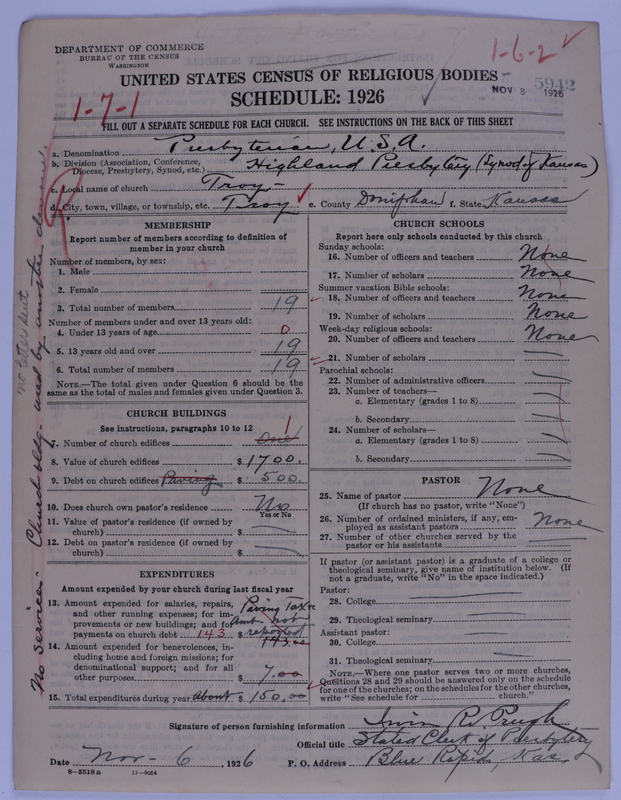 DEPARTMENT OF COMMERCE
BUREAU OF THE CENSUS
WASHINGTON
1-6-2 ✓
UNITED STATES CENSUS OF RELIGIOUS BODIES
NOV 8 1926
5942
SCHEDULE: 1926
1-7-1
FILL OUT A SEPARATE SCHEDULE FOR EACH CHURCH. SEE INSTRUCTIONS ON THE BACK OF THIS SHEET
a. Denomination Presbyterian, U.S.A.
b. Division (Association, Conference, Diocese, Presbytery, Synod, etc.) Highland Presbytery (Synod of Kansas)
c. Local name of church Troy-
d. City, town, village, or township, etc. Troy ✓ e. County Doniphan f. State Kansas
MEMBERSHIP
Report number of members according to definition of
member in your church
Number of members, by sex:
1. Male
2. Female
3. Total number of members 19
Number of members under and over 13 years old:
4. Under 13 years of age 0
5. 13 years old and over 19
6. Total number of members 19
NOTE.—The total given under Question 6 should be the
same as the total of males and females given under Question 3.
CHURCH BUILDINGS
See instructions, paragraphs 10 to 12
7. Number of church edifices One 1
8. Value of church edifices $1700.
9. Debt on church edifices Paving $ 500.
10. Does church own pastor's residence No
Yes or No
11. Value of pastor's residence (if owned by
church) $
12. Debt on pastor's residence (if owned by
church) $
EXPENDITURES
Amount expended by your church during last fiscal year
13. Amount expended for salaries, repairs,
and other running expenses; for im-
provements or new buildings; and for
payments on church debt 143 $ Paving Tax Amt not reported 143.00
14. Amount expended for benevolences, in-
cluding home and foreign missions; for
denominational support; and for all
other purposes $ 7.00
15. Total expenditures during year about $ 150.00
CHURCH SCHOOLS
Report here only schools conducted by this church
Sunday schools:
16. Number of officers and teachers None
17. Number of scholars None
Summer vacation Bible schools:
18. Number of officers and teachers None
19. Number of scholars None
Week-day religious schools:
20. Number of officers and teachers None
21. Number of scholars
Parochial schools:
22. Number of administrative officers
23. Number of teachers—
a. Elementary (grades 1 to 8)
b. Secondary
24. Number of scholars—
a. Elementary (grades 1 to 8)
b. Secondary
PASTOR
25. Name of pastor None
(If church has no pastor, write "None")
26. Number of ordained ministers, if any, em-
ployed as assistant pastors None
27. Number of other churches served by the
pastor or his assistants
If pastor (or assistant pastor) is a graduate of a college or
theological seminary, give name of institution below. (If
not a graduate, write "No" in the space indicated.)
Pastor:
28. College
29. Theological seminary
Assistant pastor:
30. College
31. Theological seminary
NOTE.—Where one pastor serves two or more churches,
Questions 28 and 29 should be answered only on the schedule
for one of the churches; on the schedules for the other churches,
write "See schedule for church."
Signature of person furnishing information R. Pugh
Official title Stated Clerk of Presbytery
Date Nov- 6, 1926 P. O. Address Blue Rapids, Kas.
8-5518a 11-9054
No services. Church bldg. used by another denom.